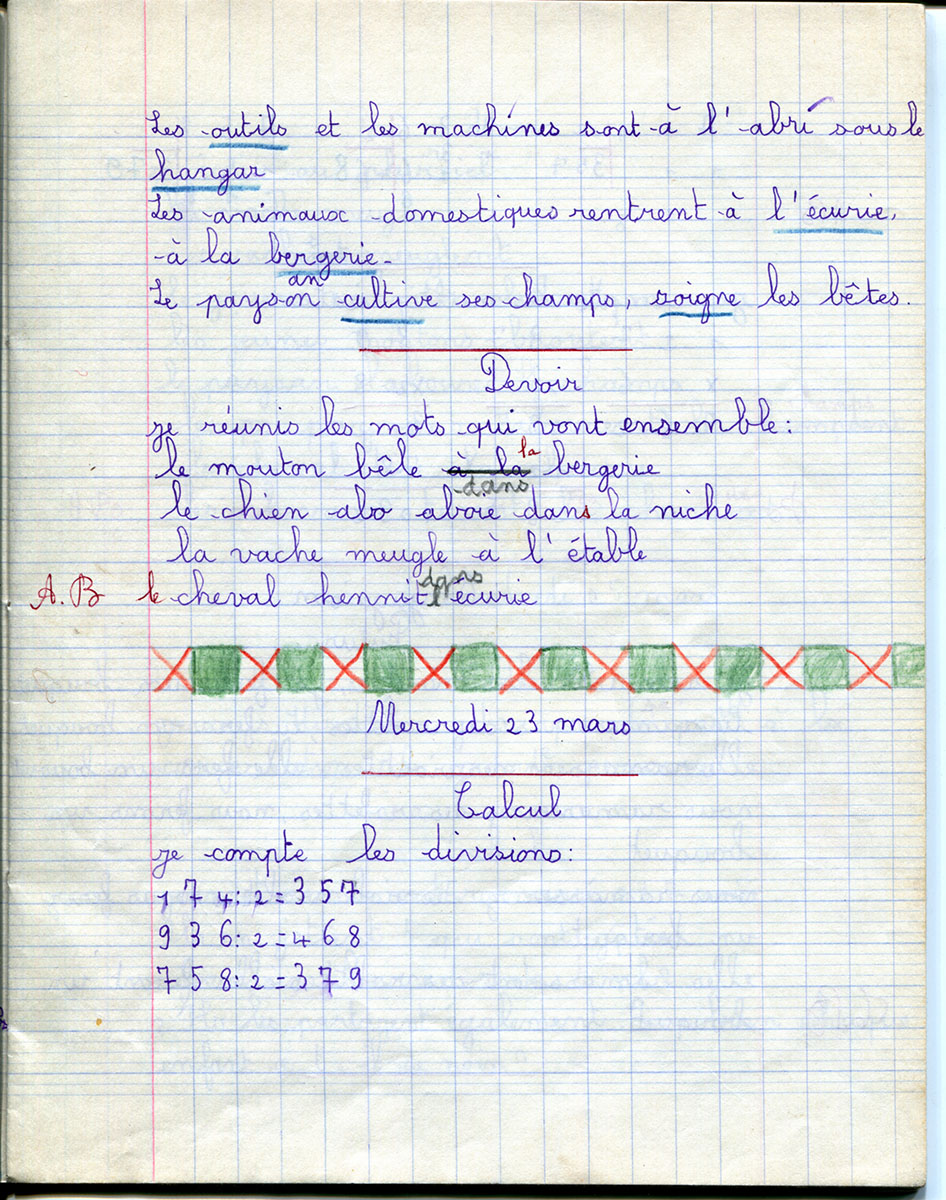 Les outils et les machines sont à l'abri sous le
hangar
Les animaux domestiques rentrent à l'écurie,
à la bergerie.
an
Le payson cultive ses champs, soigne les bêtes.
Devoir
je réunis les mots qui vont ensemble:
le mouton bêle à la la bergerie
dans
le chien abo aboie dans la niche
la vache meugle à l'étable
dans
A.B le cheval hennit l'écurie
Mercredi 23 mars
Calcul
je compte les divisions:
174:2=357
936:2=468
758:2=379